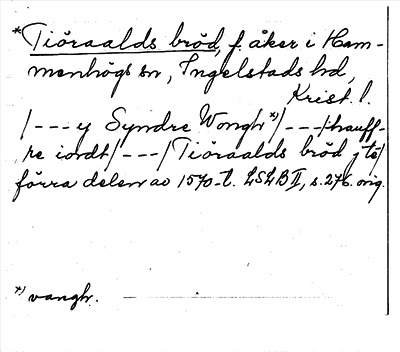 *Tiöraalds bröd, f. åker i Ham-
menhögs sn, Ingelstads hd,
Krist. l.
/---y Syndre Wongh*)/---/hauff-
re iordt/---/Tiöraalds bröd j tö/
förra delen av 1570-t. LSLB II, s. 276. orig.
*) vangh.